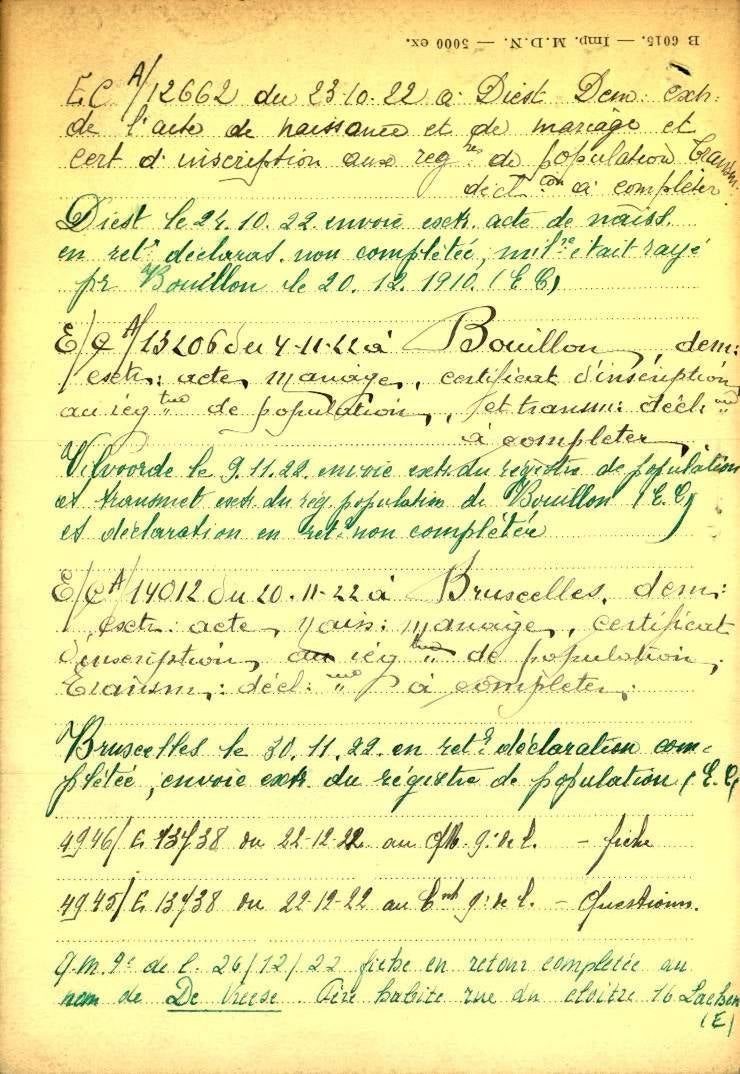 B 6015. — Imp. M.D.N. — 5000 ex.
E.C. A/12662 du 23-10-22 a Diest Dem: extr:
de l'acte de naissance et de mariage et
cert d'inscription aux reg.res de population Transm:
décl:on à compléter.
Diest le 24.10.22. envoie extr. acte de naiss.
en ret. déclarat. non complétée, était rayé
pr Bouillon le 20.12.1910. (E C)
E/C A/13206 du 4-11-22 à Bouillon, dem:
extr: acte mariage, certificat d'inscription
au rég. de population, et transm: décl:
à completer
Vilvoorde le 9.11.22. envoie extr. du registre de population
et transmet extr. du rég. population de Bouillon (E.C)
et déclaration en ret. non complétée
E/C A/14012 du 20-11-22 à Bruxelles, dem:
extr: acte naiss: mariage, certificat
d'inscription au rég. de population,
Transm: décl: à completer.
Bruxelles le 30.11.22. en ret. déclaration com-
plétée, envoie extr. du régistre de population (E.C)
4946/E 13738 du 22-12-22 au g. de l. - fiche
4945/E 13738 du 22-12-22 au g. de l. - Questionn.
Q.M. Ge de l. 26/12/22 fiche en retour completée au
nom de De Vreese. Père habite rue du cloitre 16 Laeken
(E)